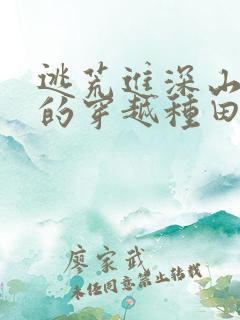 逃荒進深山
的穿越種田
廖家武
未经同意禁止转载